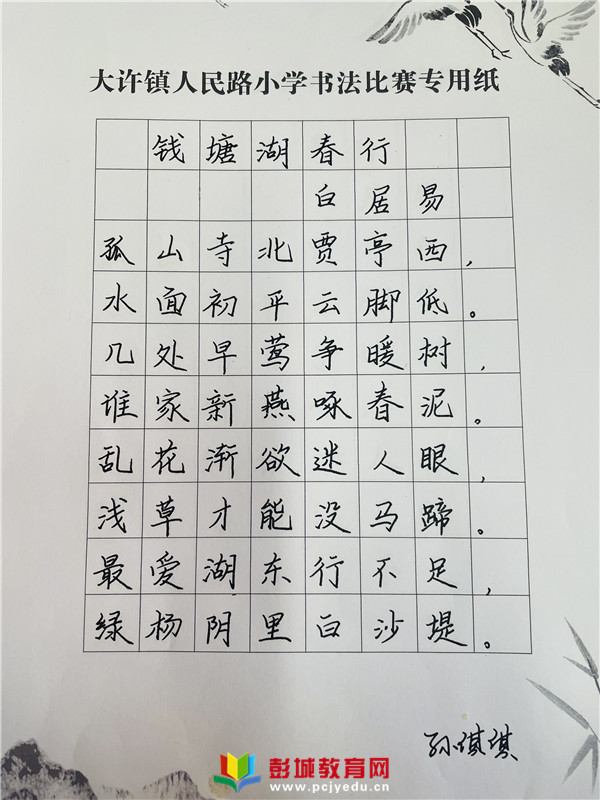 大许镇人民路小学书法比赛专用纸
钱塘湖春行
白居易
孤山寺北贾亭西，
水面初平云脚低。
几处早莺争暖树，
谁家新燕啄春泥。
乱花渐欲迷人眼，
浅草才能没马蹄。
最爱湖东行不足，
绿杨阴里白沙堤。
孙淇淇
彭城教育网
www.pcjyedu.cn